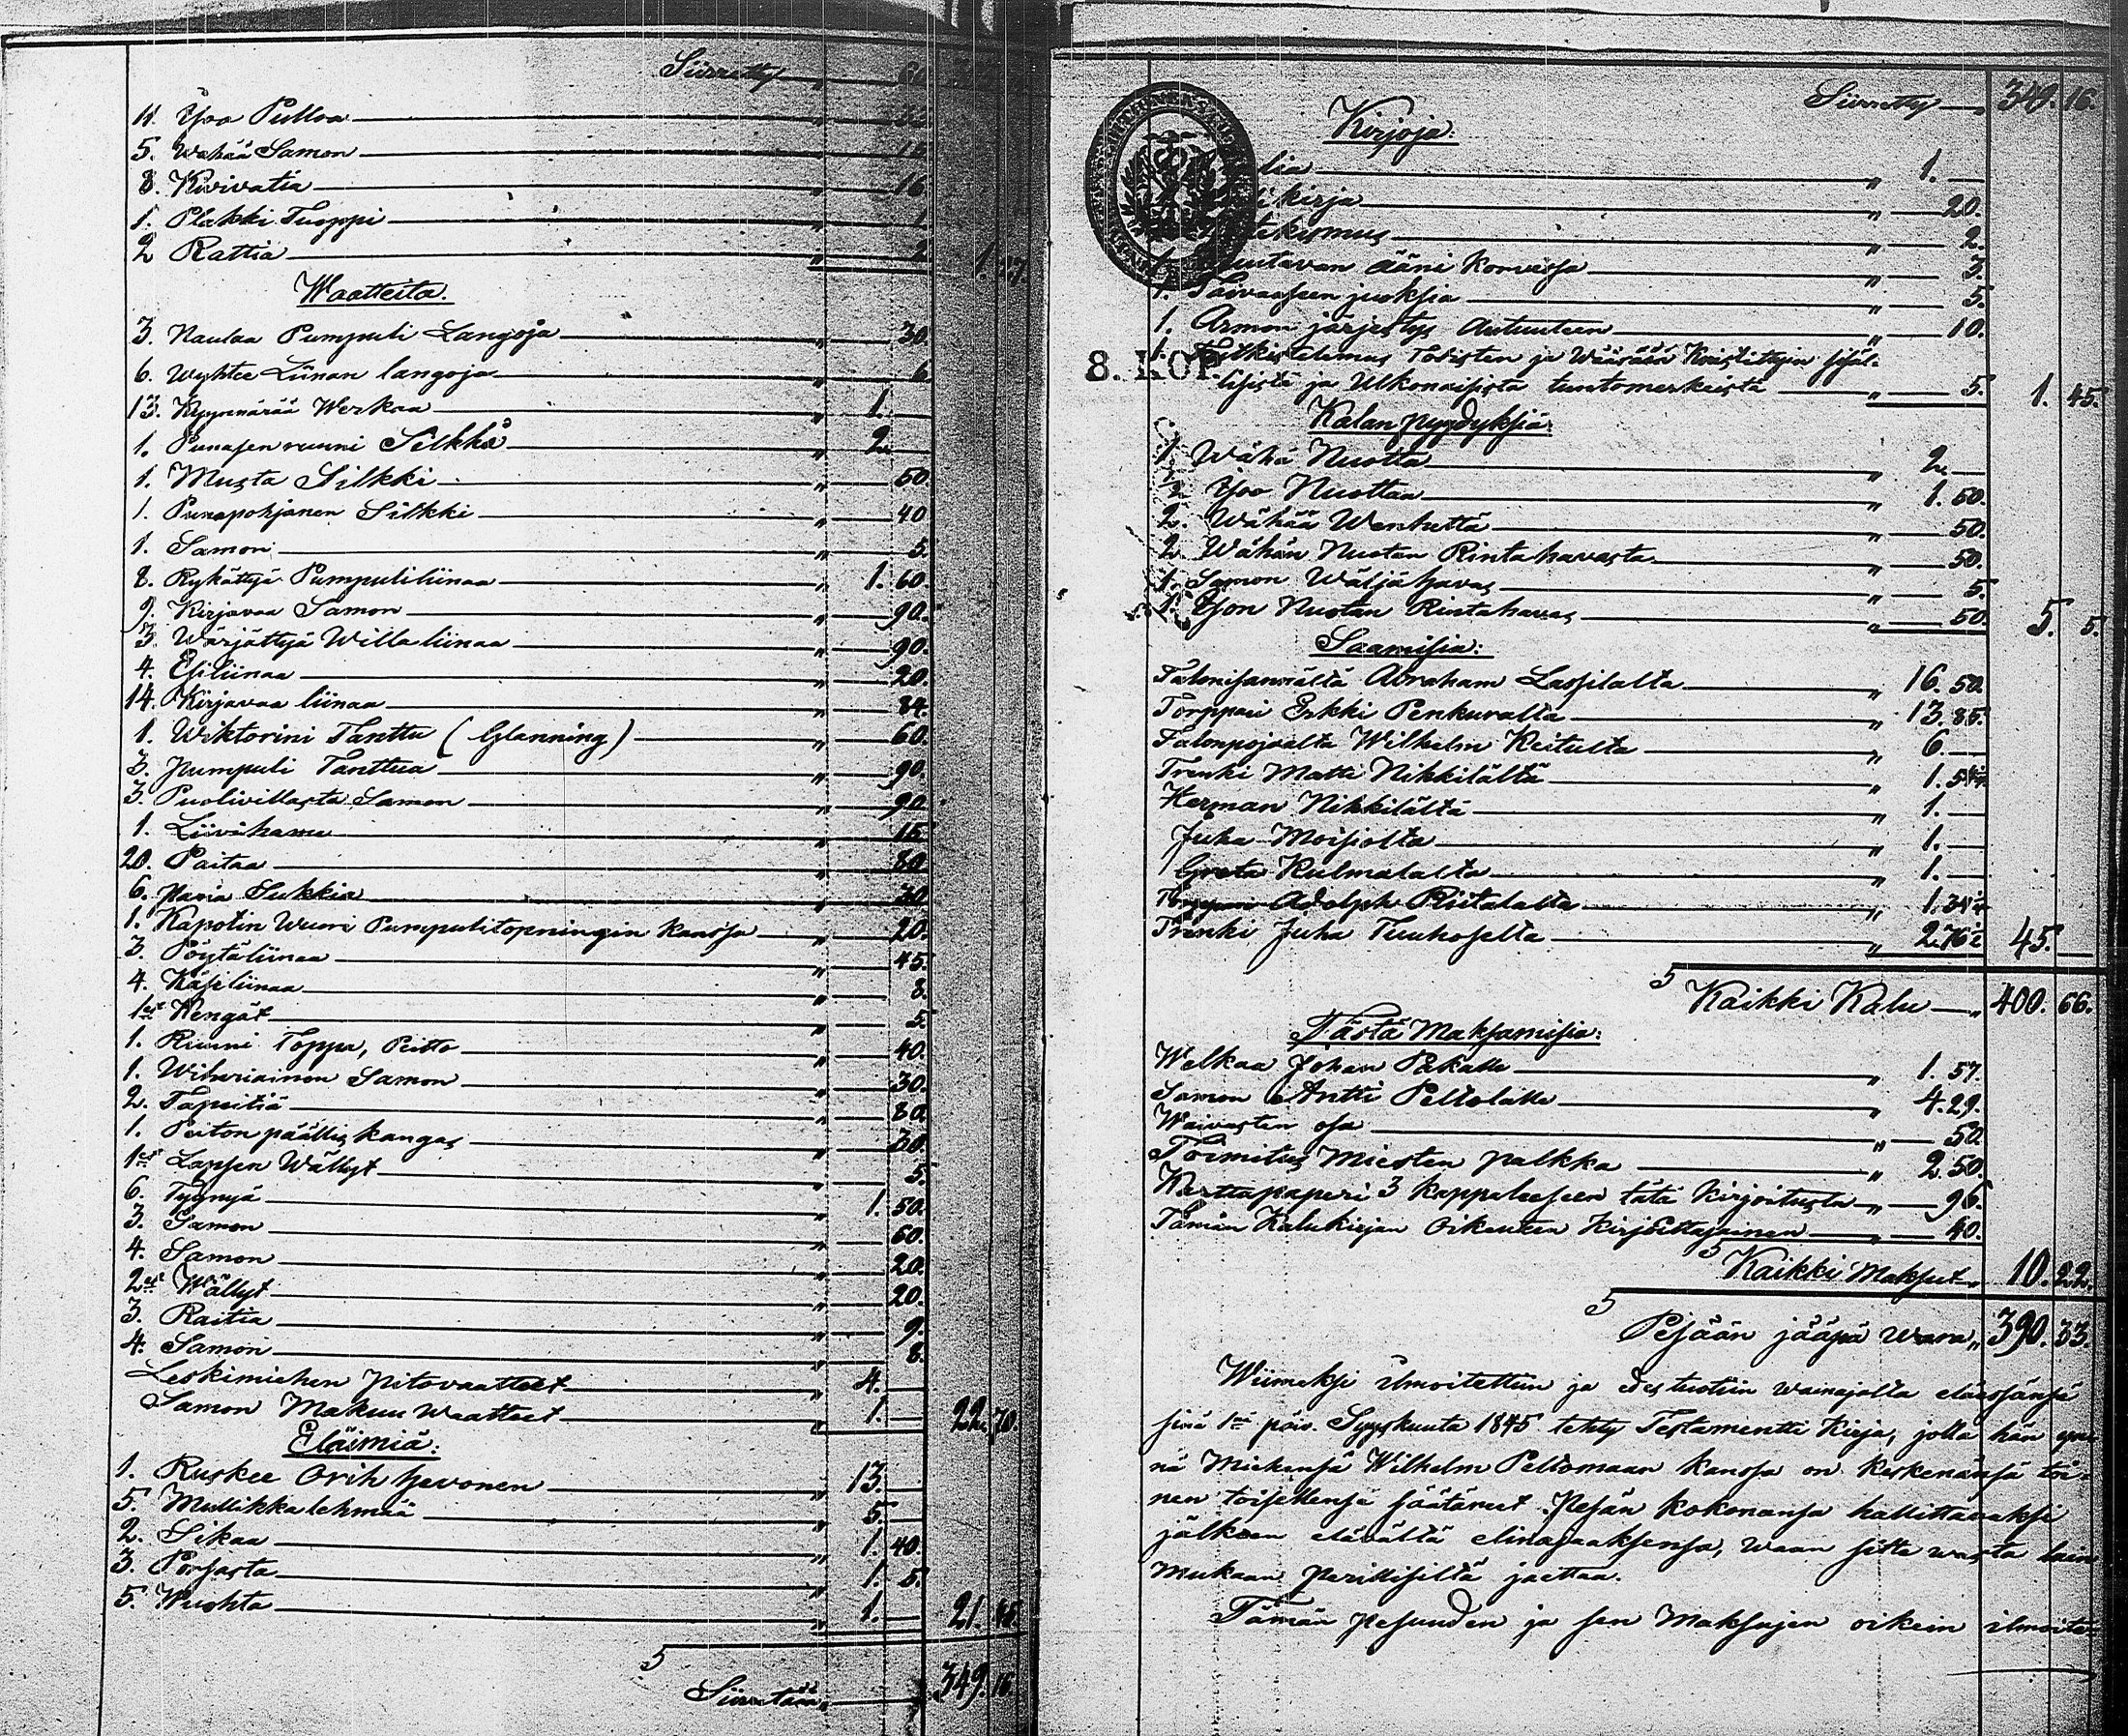 Siirretty " 60.
11. Yoo Pulloa " 33.
5. Wähää Samon " 15
8. Kivivatia " 16
1. Pläkki Tuoppi " 1.
2 Rattia " 2 1. 27.
Waatteita.
3. Naulaa Pumpuli Langoja " 30.
6. Wyhtee Liinan langoja " 6
13. Kyynärää Werkaa " 1.
1. Punasen ruuni Silkkä " 2.
1. Musta Silkki " 50.
1. Punapohjanen Silkki " 40
1. Samon " 5.
8. Rykättyä Pumpuliliinaa " 1. 60.
9. Kirjavaa Samon " 90.
3. Wärjättyä Willa liinaa " 90.
4. Esiliinaa " 20.
14. Kirjavaa liinaa " 84.
1. Wiktorini Tanttu (Glanning) " 60.
3. Pumpuli Tanttua " 90.
3. Puolivillasta Samon " 90.
1. Liivihame " 15
20. Paitaa " 80
6. paria Sukkia " 30
1. Kapotin Wuori Pumpulitopningin kanssa " 20.
3. Pöytäliinaa " 45.
4. Käsiliinaa " 8.
1et Kengät " 5.
1. Ruuni Toppa, Peitto " 40.
1. Wiheriäinen Samon " 30.
2. Tapeitiä " 80.
1. Peiton päällis kangas " 30.
1et Lapsen Wällyt " 5.
6. Tyynyä " 1. 50.
3. Samon " 60.
4. Samon " 20.
2et Wällyt " 20.
3. Raitia " 9.
4. Samon " 8.
Leskimiehen pitovaatteet " 4.
Samon Makuu Waatteet " 1. 22. 70.
Eläimiä:
1. Ruskee Orih hevonen " 13.
5. Mullikka lehmää " 5.
2. Sikaa " 1. 40.
3. Porsasta " 1. 5.
5. Wuohta " 1. 21. 45.
S
Siirretään " 349. 16
Siirretty " 349. 16.
Kirjoja:
" 1.
kirja " 20.
" 2.
ääni Korvissa " 3.
1. Taivaaseen juoksia " 5.
1. Armon järjestys Autuuteen " 10.
1. Tutkistelemus Todisten ja Wääräin Kristittyin sisäl-
lisistä ja Ulkonaisista tuntomerkeistä " 5. 1. 45.
8. KOP
Kalan pyydyksiä:
1. Wähä Nuotta " 2.
Yoo Nuottaa " 1. 50.
2. Wähää Wentuttä " 50.
2. Wähän Nuotan Rintahavasta " 50.
1. Samon Wäljä havas " 5.
1. Yön Nuotan Rintahavas " 50. 5. 5.
Saamisia:
Talonisännältä Abraham Lassilalta " 16. 50.
Torppari Erkki Penkuralta " 13. 85.
Talonpojaalta Wilhelm Keitulta " 6.
Trenki Matti Nikkilältä " 1.
Herman Nikkilältä " 1.
Juha Moisiolta " 1.
Greta Kulmalalta " 1.
Adolph Rintalalta " 1.
Trenki Juha Tuuhoselta " 2. 45.
S
Kaikki Kalu " 400. 66.
Tästä Maksamisia:
Welkaa Johan Pakalle " 1. 57.
Samon Antti Peltolalle " 4. 29.
Waivasten osa " 50.
Toimitus Miesten palkka " 2. 50.
Karttapaperi 3 kappaleeseen tätä kirjoitusta " 96.
Tämän Kalukirjan Oikeuteen kirjoittajainen " 40.
S
Kaikki Maksut " 10. 22.
S
Pesään jääpä wara " 390. 33.
Wiimeksi ilmoitettiin ja edestuotiin wainajalta eläissänsä
sinä 1nä päiv. Syyskuuta 1845 tehty Testamentti Kirja, jolla hän ynnä
nä Miehensä Wilhelm Peltomaan kanssa on keskenänsä toi-
nen toisellensa säätäneet Pesän kokonansa hallittavaksi
jälkeen elävältä elinajaaksensa, waan sitte wasta lain
mukaan perillisiltä jaettaa.
Tämän pesuuden ja sen Maksujen oikein ilmoite-